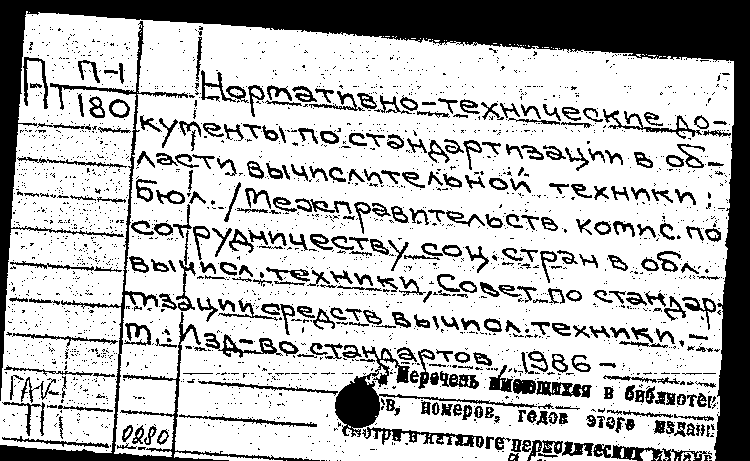 П П-1
НТ 180
Нормативно-технические до-
кументы по стандартизации в об-
ласти вычислительной техники:
бюл. / Межправительств. комис. по
сотрудничеству соц. стран в обл.
вычисл. техники, Совет по стандар-
тизации средств вычисл. техники. –
М.: Изд-во стандартов, 1986 –
Перечень имеющихся в библиотеке
номеров, годов этого издания
смотри в каталоге периодических изданий
0280